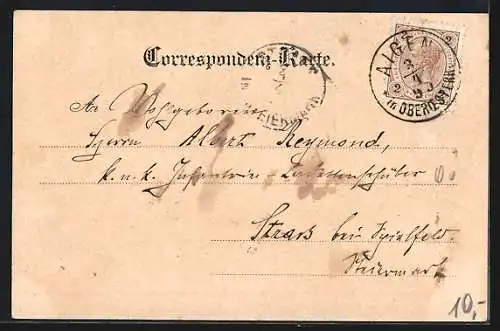 AIGEN
in OBERÖSTERR.
Correspondenz-Karte.
STEIERMARK
An Wohlgeboren
Herrn Albert Reymond,
k. u. k. Infanterie-Cadettenschüler
Strass bei Spielfeld.
Steiermark
10,-